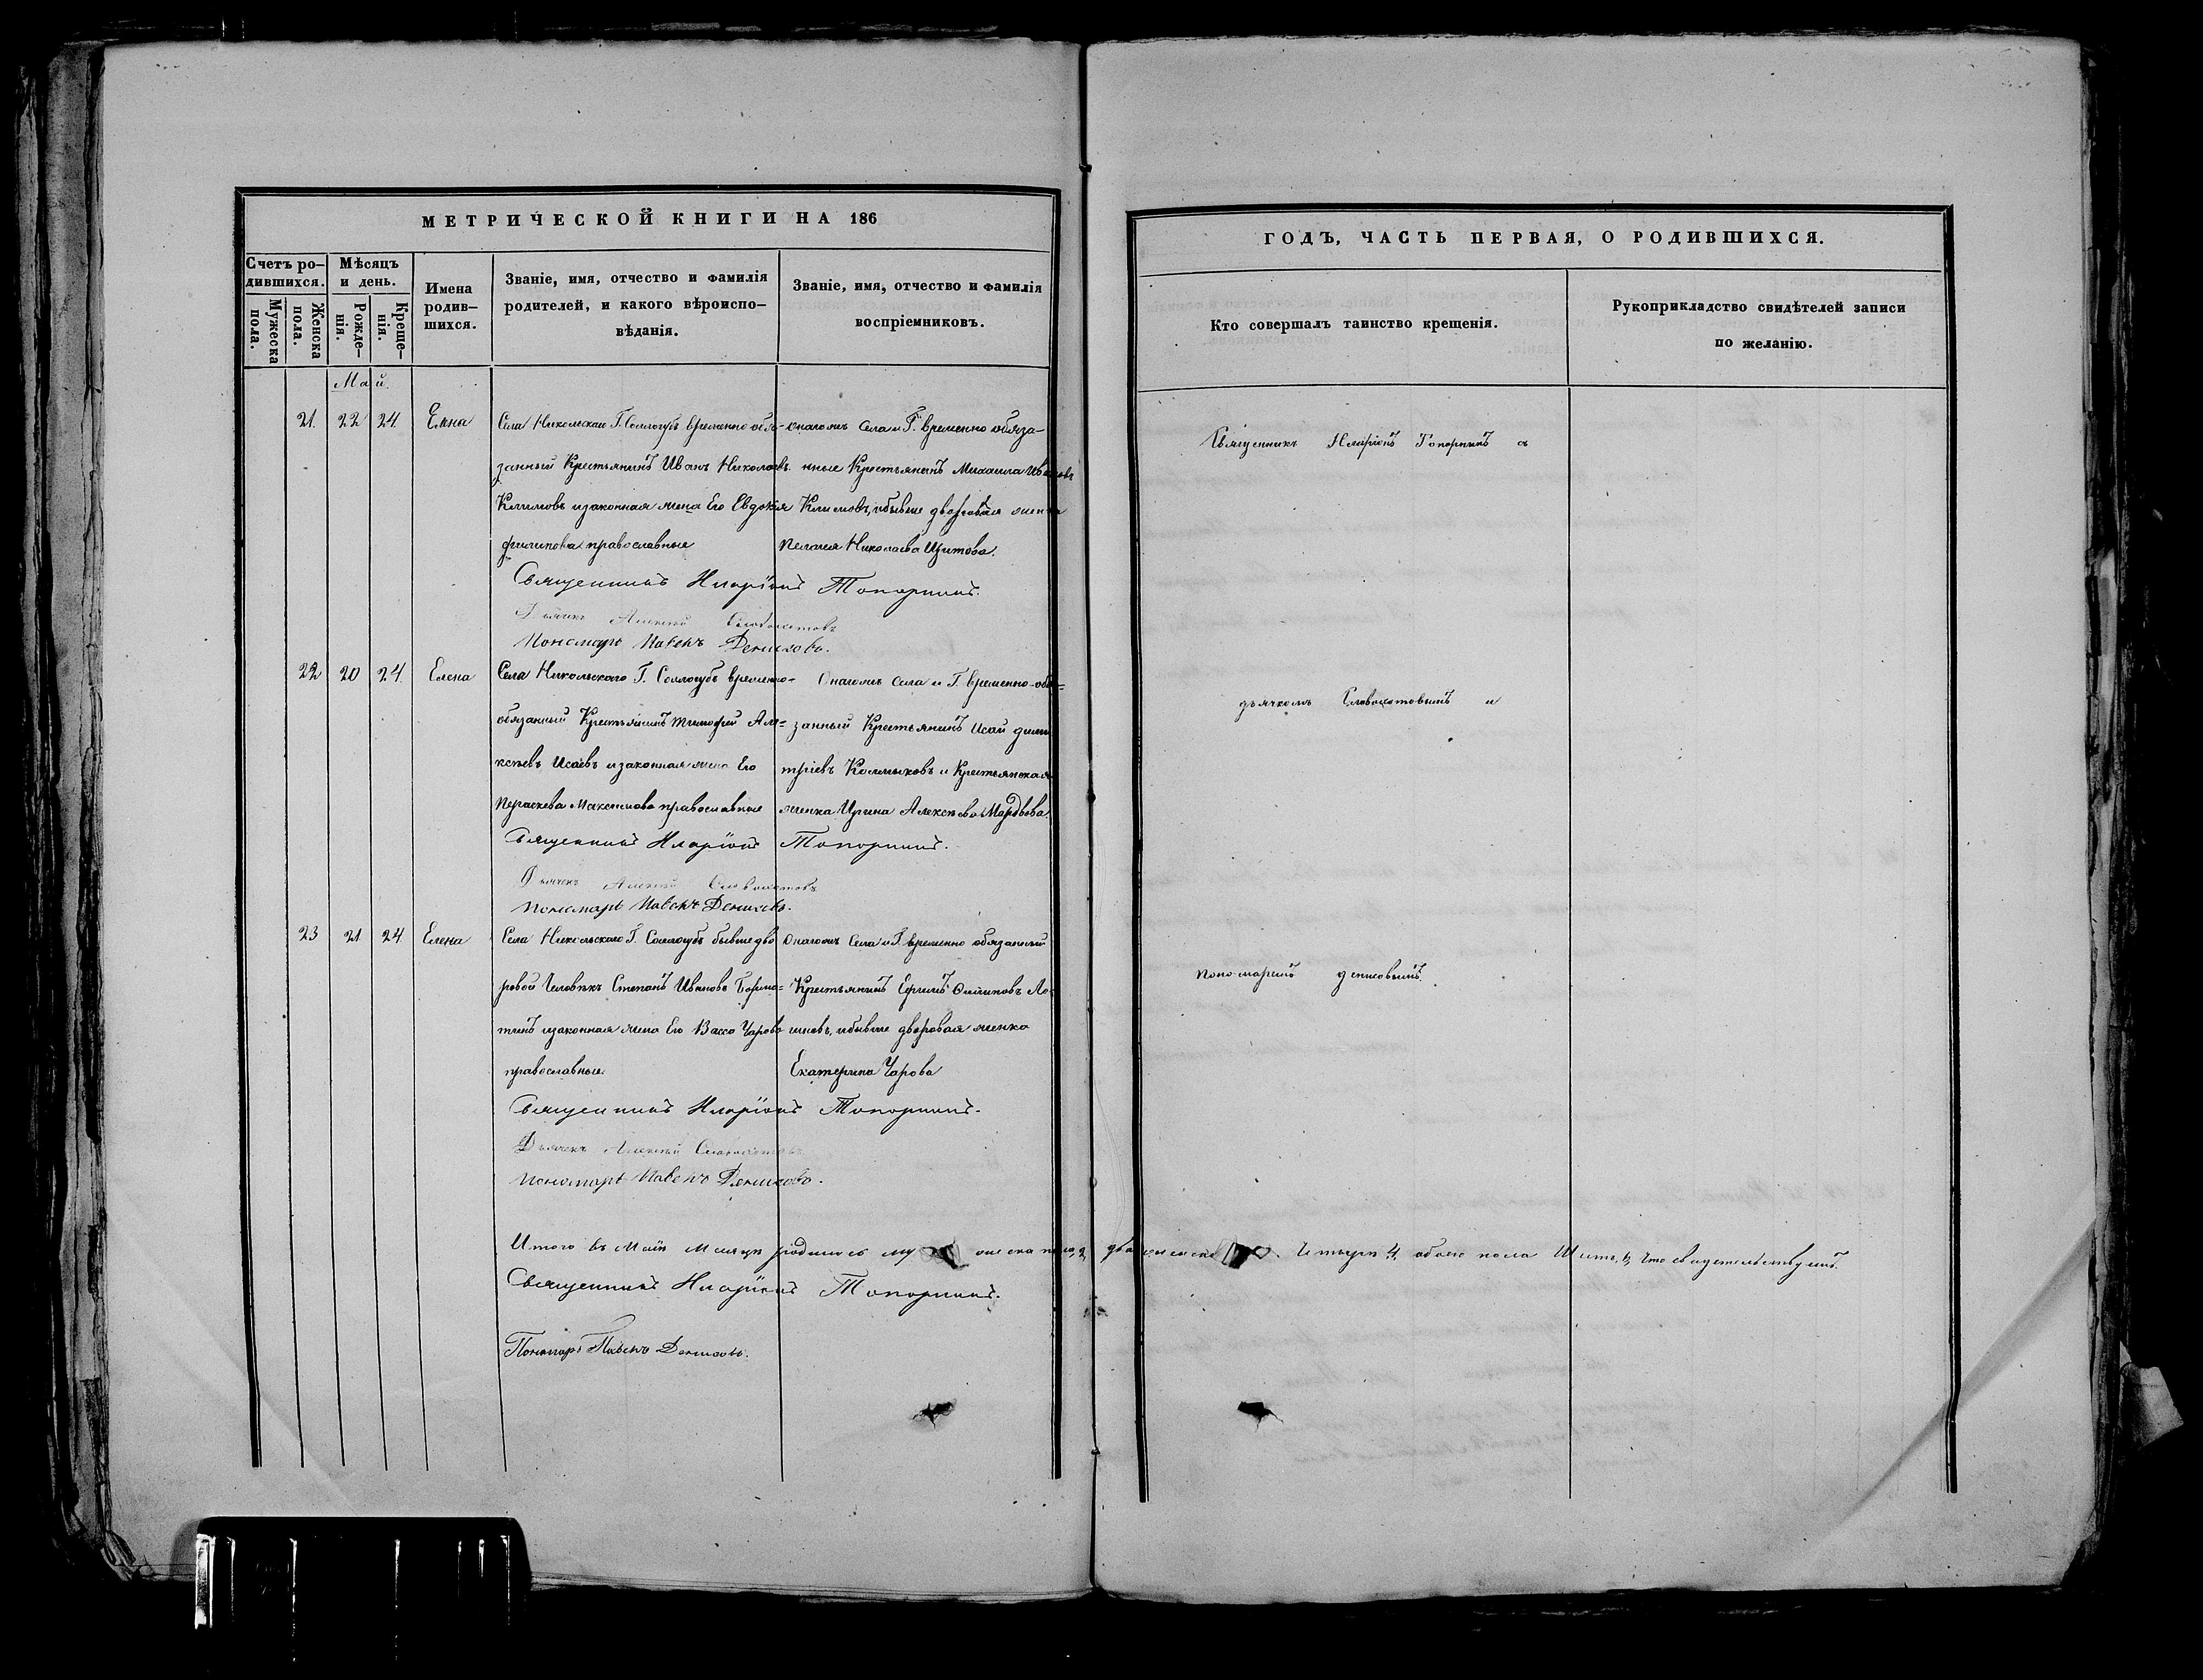 МЕТРИЧЕСКОЙ КНИГИ НА 186
Счетъ ро-
дившихся.
Мужеска
пола.
Женска
пола.
Мѣсяцъ
и день.
Рожде-
нія.
Креще-
нія.
Имена
родив-
шихся.
Званіе, имя, отчество и фамилія
родителей, и какого вѣроиспо-
вѣданія.
Званіе, имя, отчество и фамилія
воспріемниковъ.
Май.
21. 22 24 Елена
Села Никольскаго Г. Соллогубъ временно обя-
занный Крестьянинъ Иванъ Николаевъ
Климовъ и законная жена Его Евдокія
Филипова православные
Онагожъ Села и Г. временно обяза-
нные Крестьянинъ Михаила Ивановъ
Климовъ, и бывше дворовая женка
Пелагея Николаева
Священникъ Иларіонъ Топорнинъ.
Дьячекъ Алексѣй Словохотовъ
Пономарь Павелъ Денисовъ.
22 20 24 Елена
Села Никольскаго Г. Соллогубъ временно-
обязанный Крестьянинъ Тимофей Але=
ксѣевъ Исаевъ и законная жена Его
Параскева Максимова православные
Онагожъ Села и Г. временно-обя=
занный Крестьянинъ Исай Дими
тріевъ Калмыковъ и Крестьянская
женка Ирина Алексѣева Мордвова.
Священникъ Иларіонъ Топорнинъ.
Дьячекъ Алексѣй Словохотовъ
Пономарь Павелъ Денисовъ.
23 21 24 Елена
Села Никольскаго Г. Соллогубъ бывше дво
ровой Человѣкъ Степанъ Ивановъ
и законная жена Его Васса Чарова
православные.
Онагожъ Села и Г. временно обязанный
Крестьянинъ Ефимъ Филиповъ
и бывше дворовая женка
Екатерина Чарова
Священникъ Иларіонъ Топорнинъ.
Дьячекъ Алексѣй Словохотовъ
Пономарь Павелъ Денисовъ.
Итого въ Маѣ Месяцѣ родилось
Священникъ Иларіонъ Топорнинъ.
Пономарь Павелъ Денисовъ.
ГОДЪ, ЧАСТЬ ПЕРВАЯ, О РОДИВШИХСЯ.
Кто совершалъ таинство крещенія.
Рукоприкладство свидѣтелей записи
по желанію.
Священникъ Иларіонъ Топорнинъ съ
дьячкомъ Словохотовымъ и
пономаремъ Денисовымъ.
Четыре 4, обоего пола Шесть, 6, Что свидетельствуемъ.